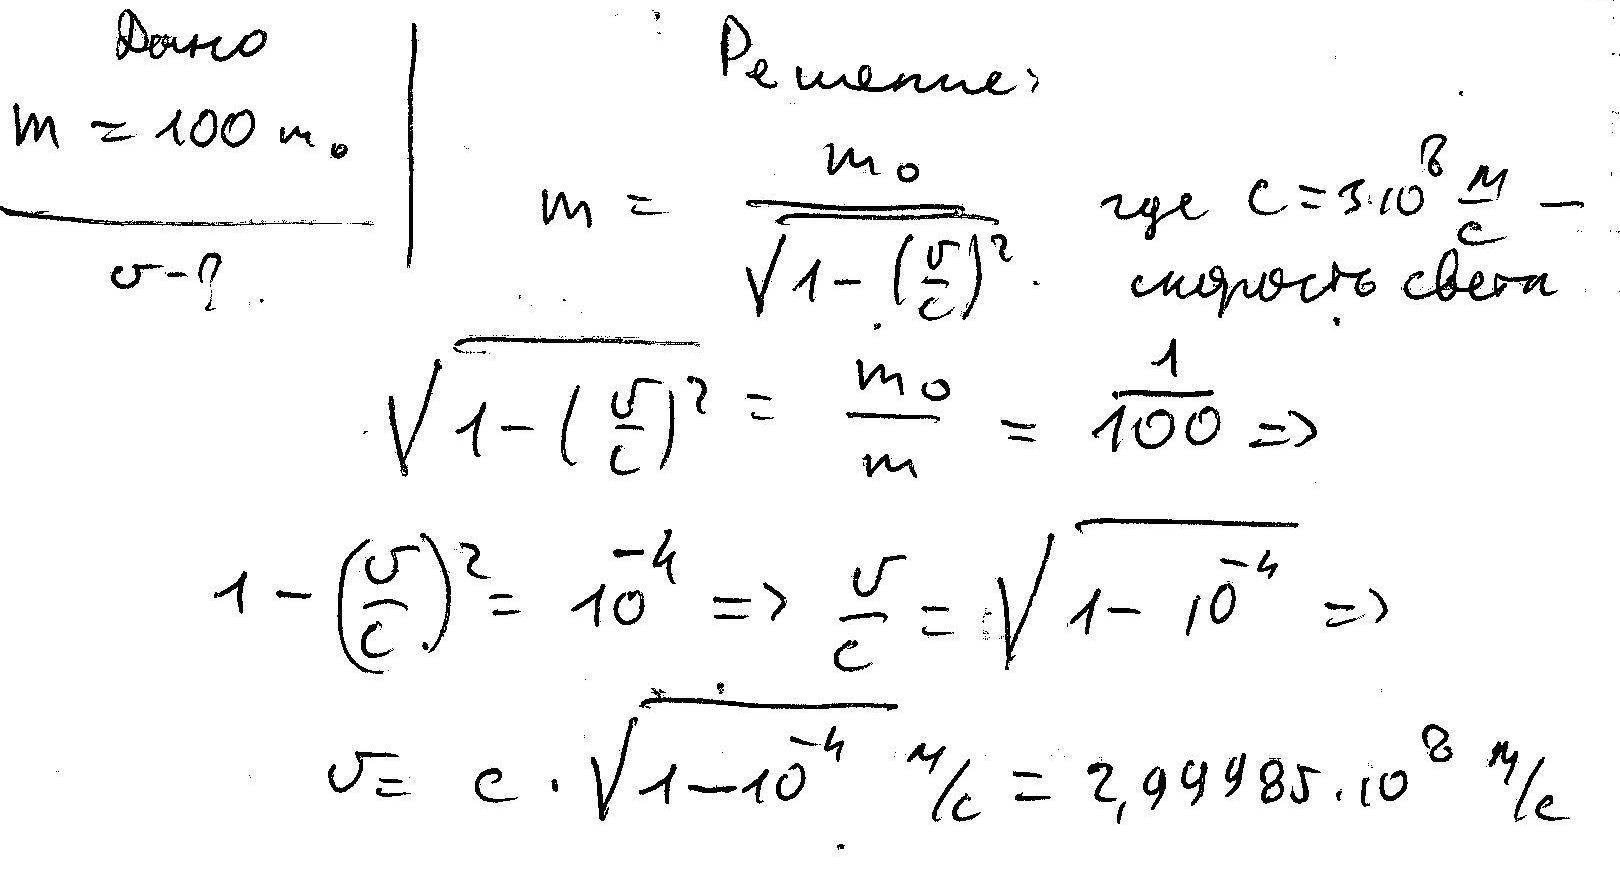 Дано
m = 100 m₀
v - ?
Решение:
m = m₀ / √(1 - (v/c)²) где c = 3·10⁸ м/с –
скорость света
√(1 - (v/c)²) = m₀/m = 1/100 =>
1 - (v/c)² = 10⁻⁴ => v/c = √(1 - 10⁻⁴) =>
v = c · √(1 - 10⁻⁴) м/с = 2,99985·10⁸ м/с